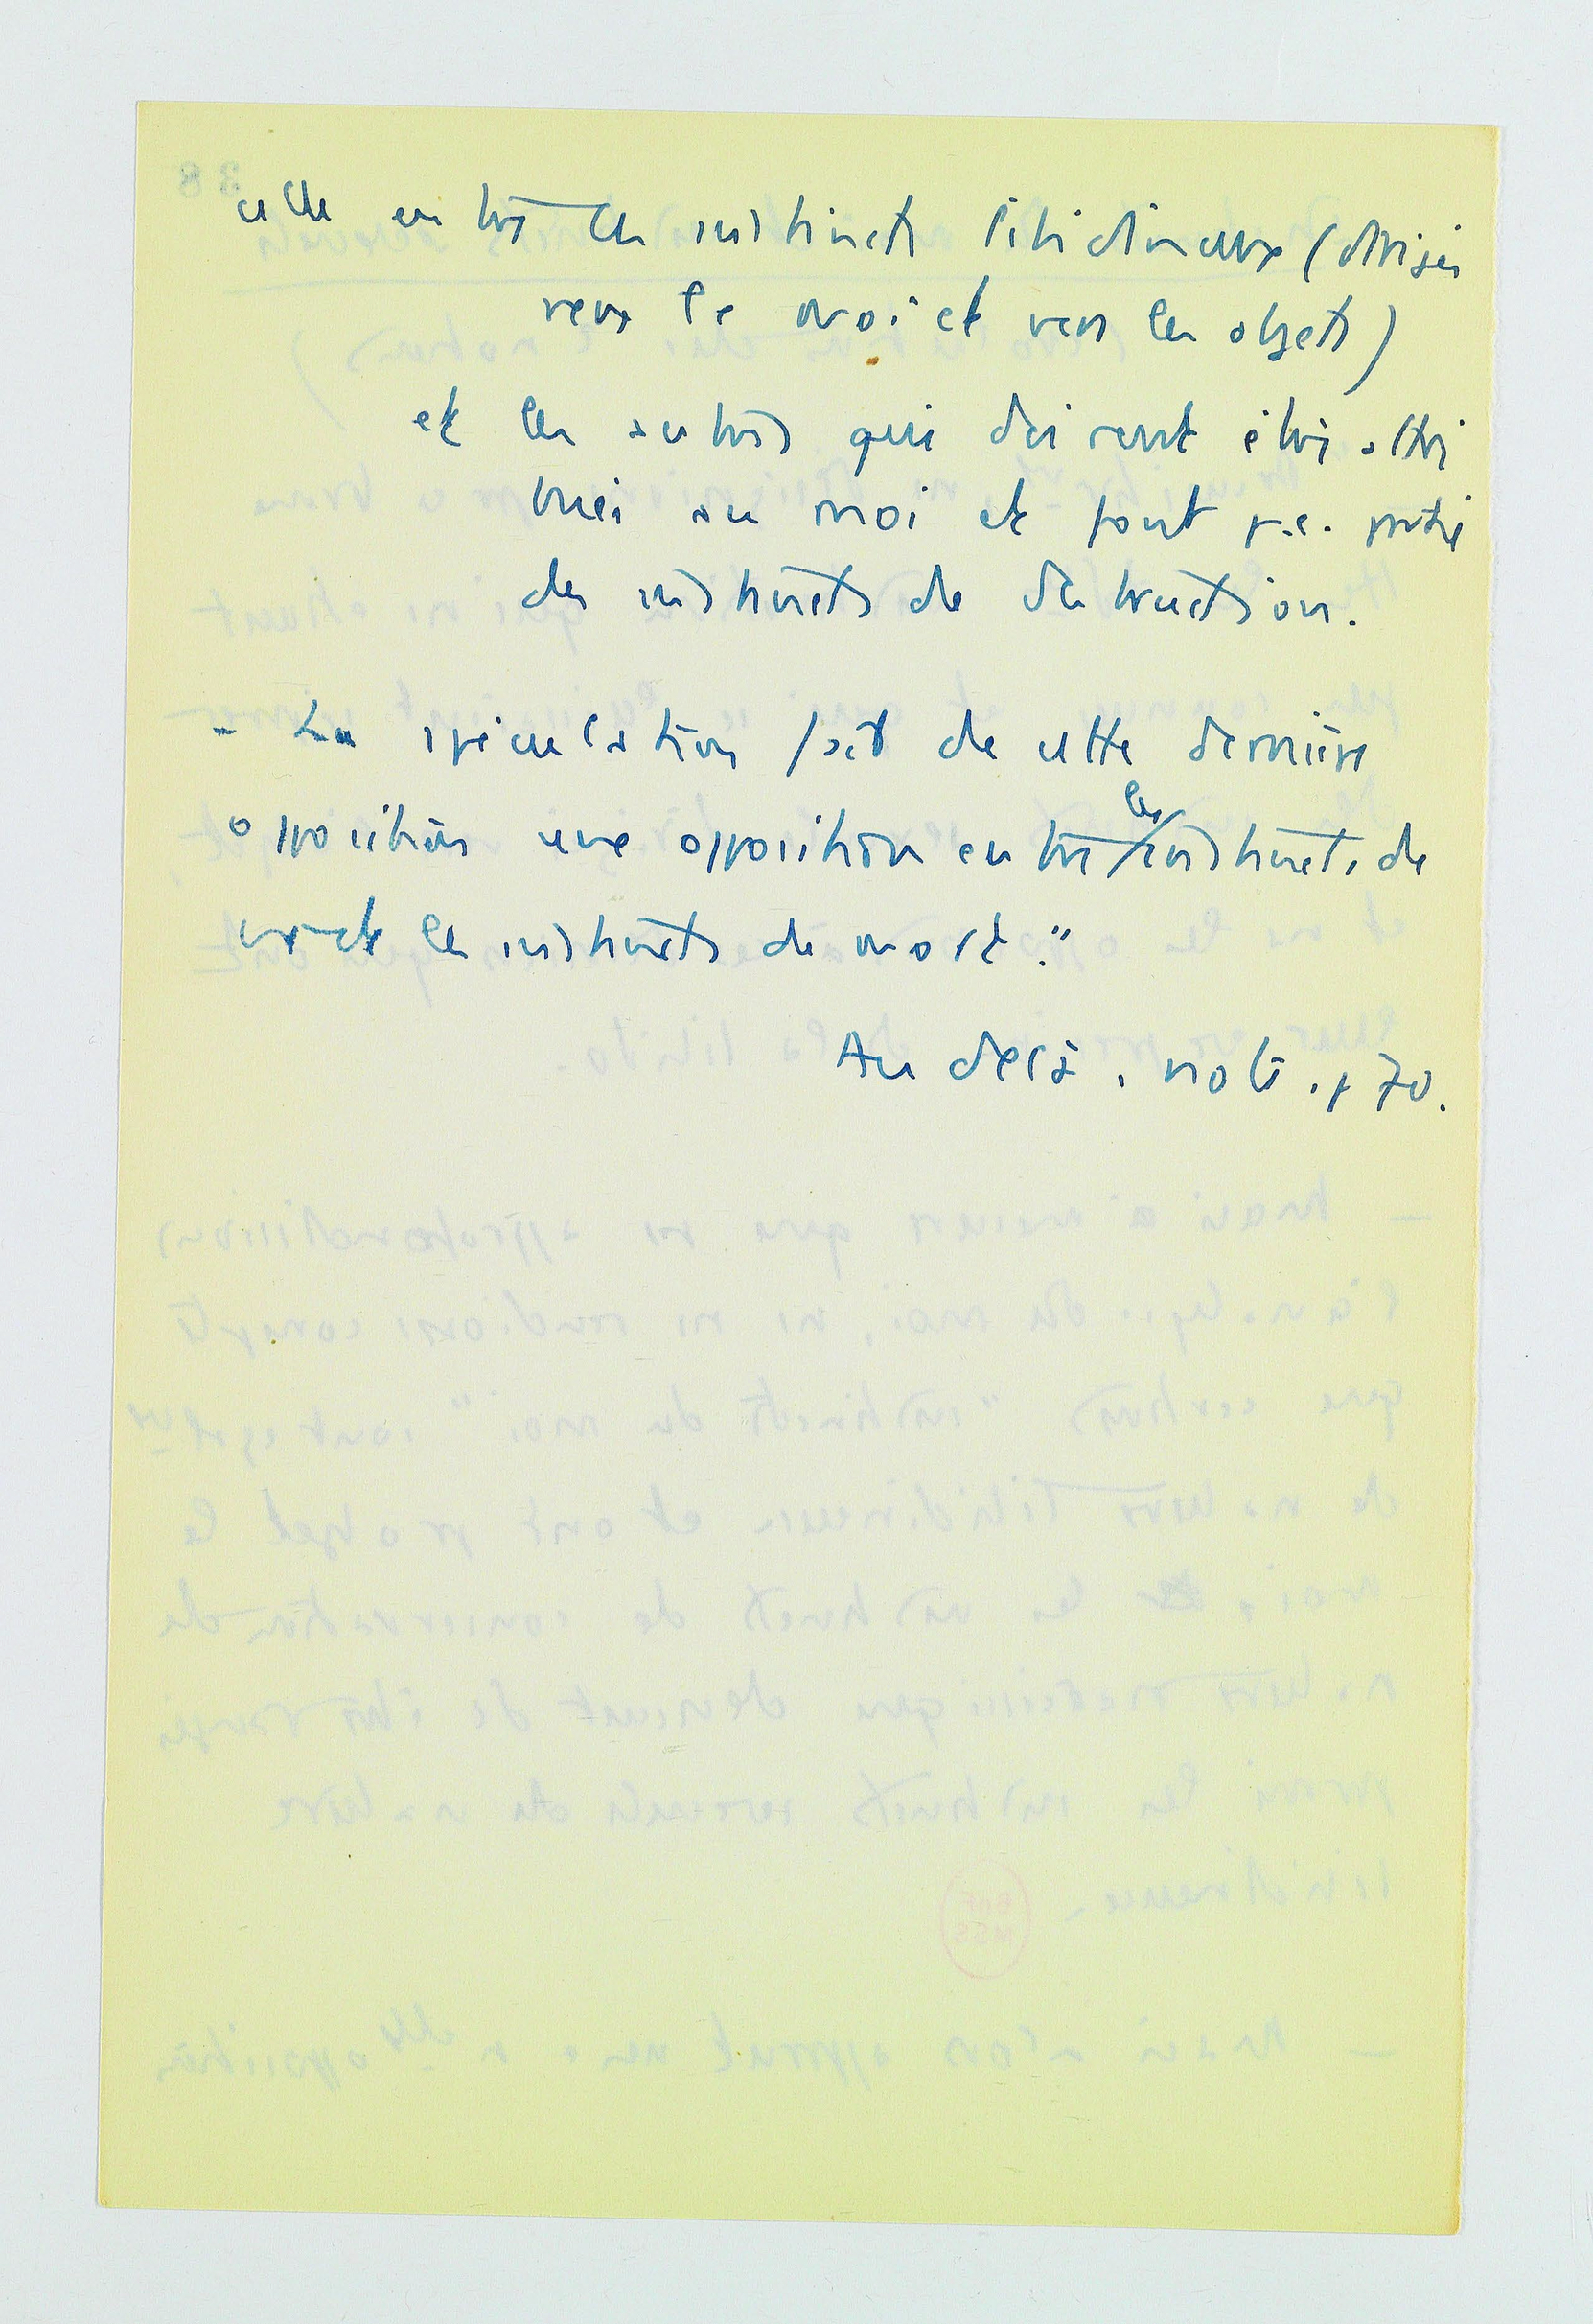 celle entre les instincts libidineux (dirigés
vers le moi et vers les objets)
et les autres qui doivent être attri
bués au moi et font p.e. partie
des instincts de destruction.
- La spéculation fait de cette dernière
opposition une opposition entre les instincts de
vie et les instincts de mort."
Au delà. note. p 70.